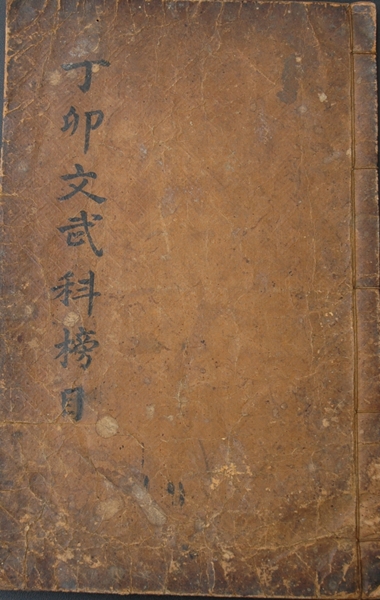 丁卯文武科榜目